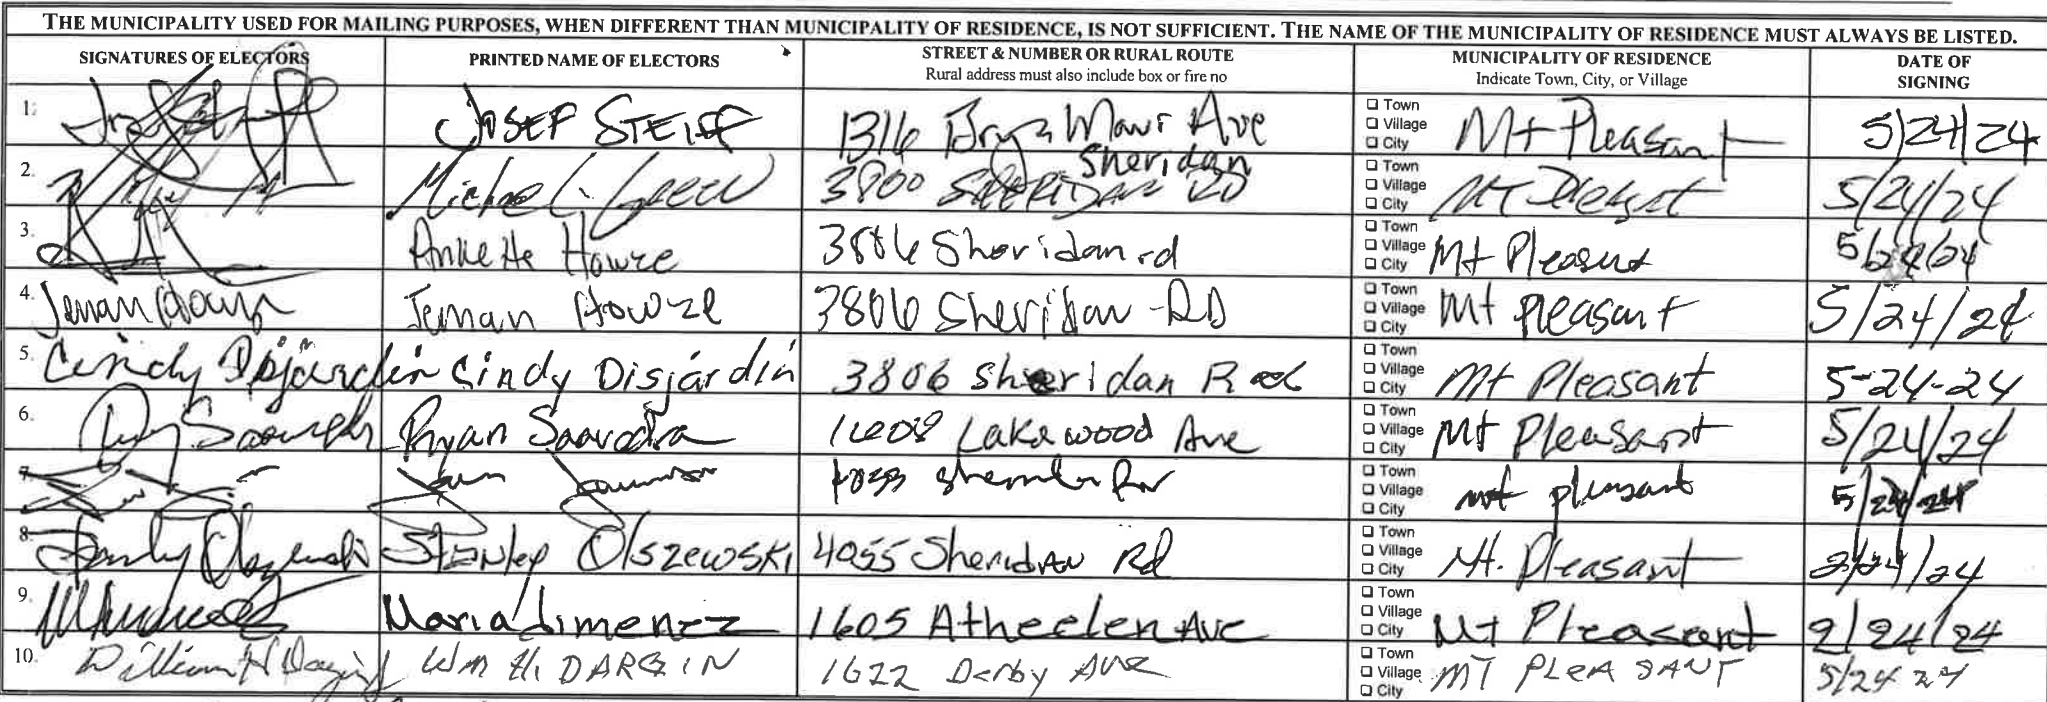 THE MUNICIPALITY USED FOR MAILING PURPOSES, WHEN DIFFERENT THAN MUNICIPALITY OF RESIDENCE, IS NOT SUFFICIENT. THE NAME OF THE MUNICIPALITY OF RESIDENCE MUST ALWAYS BE LISTED.
SIGNATURES OF ELECTORS PRINTED NAME OF ELECTORS STREET & NUMBER OR RURAL ROUTE MUNICIPALITY OF RESIDENCE DATE OF SIGNING
Rural address must also include box or fire no Indicate Town, City, or Village
1. JOSEF STEIFF 1316 Ave Town Village City Mt Pleasant 5/24/24
2. Michael Green 3800 SHERIDAN RD Sheridan Town Village City Mt Pleasant 5/24/24
3. Annette Howze 3806 Sheridan rd Town Village City Mt Pleasant 5/24/24
4. Jeman Howze 3806 Sheridan RD Town Village City Mt pleasant 5/24/24
5. Cindy Disjardin Cindy Disjardin 3806 Sheridan Town Village City Mt Pleasant 5-24-24
6. Ryan Saavedra 1608 Lakewood Ave Town Village City Mt Pleasant 5/24/24
7. Town Village City mt pleasant
8. Stanley Olszewski Stanley Olszewski 4055 Sheridan Rd Town Village City Mt. Pleasant /24/24
9. Maria Jimenez 1605 Atheelen Ave Town Village City Mt Pleasant 2/24/24
10. William H Dargin WM H. DARGIN 1622 Derby Ave Town Village City MT PLEASANT 5/24 24